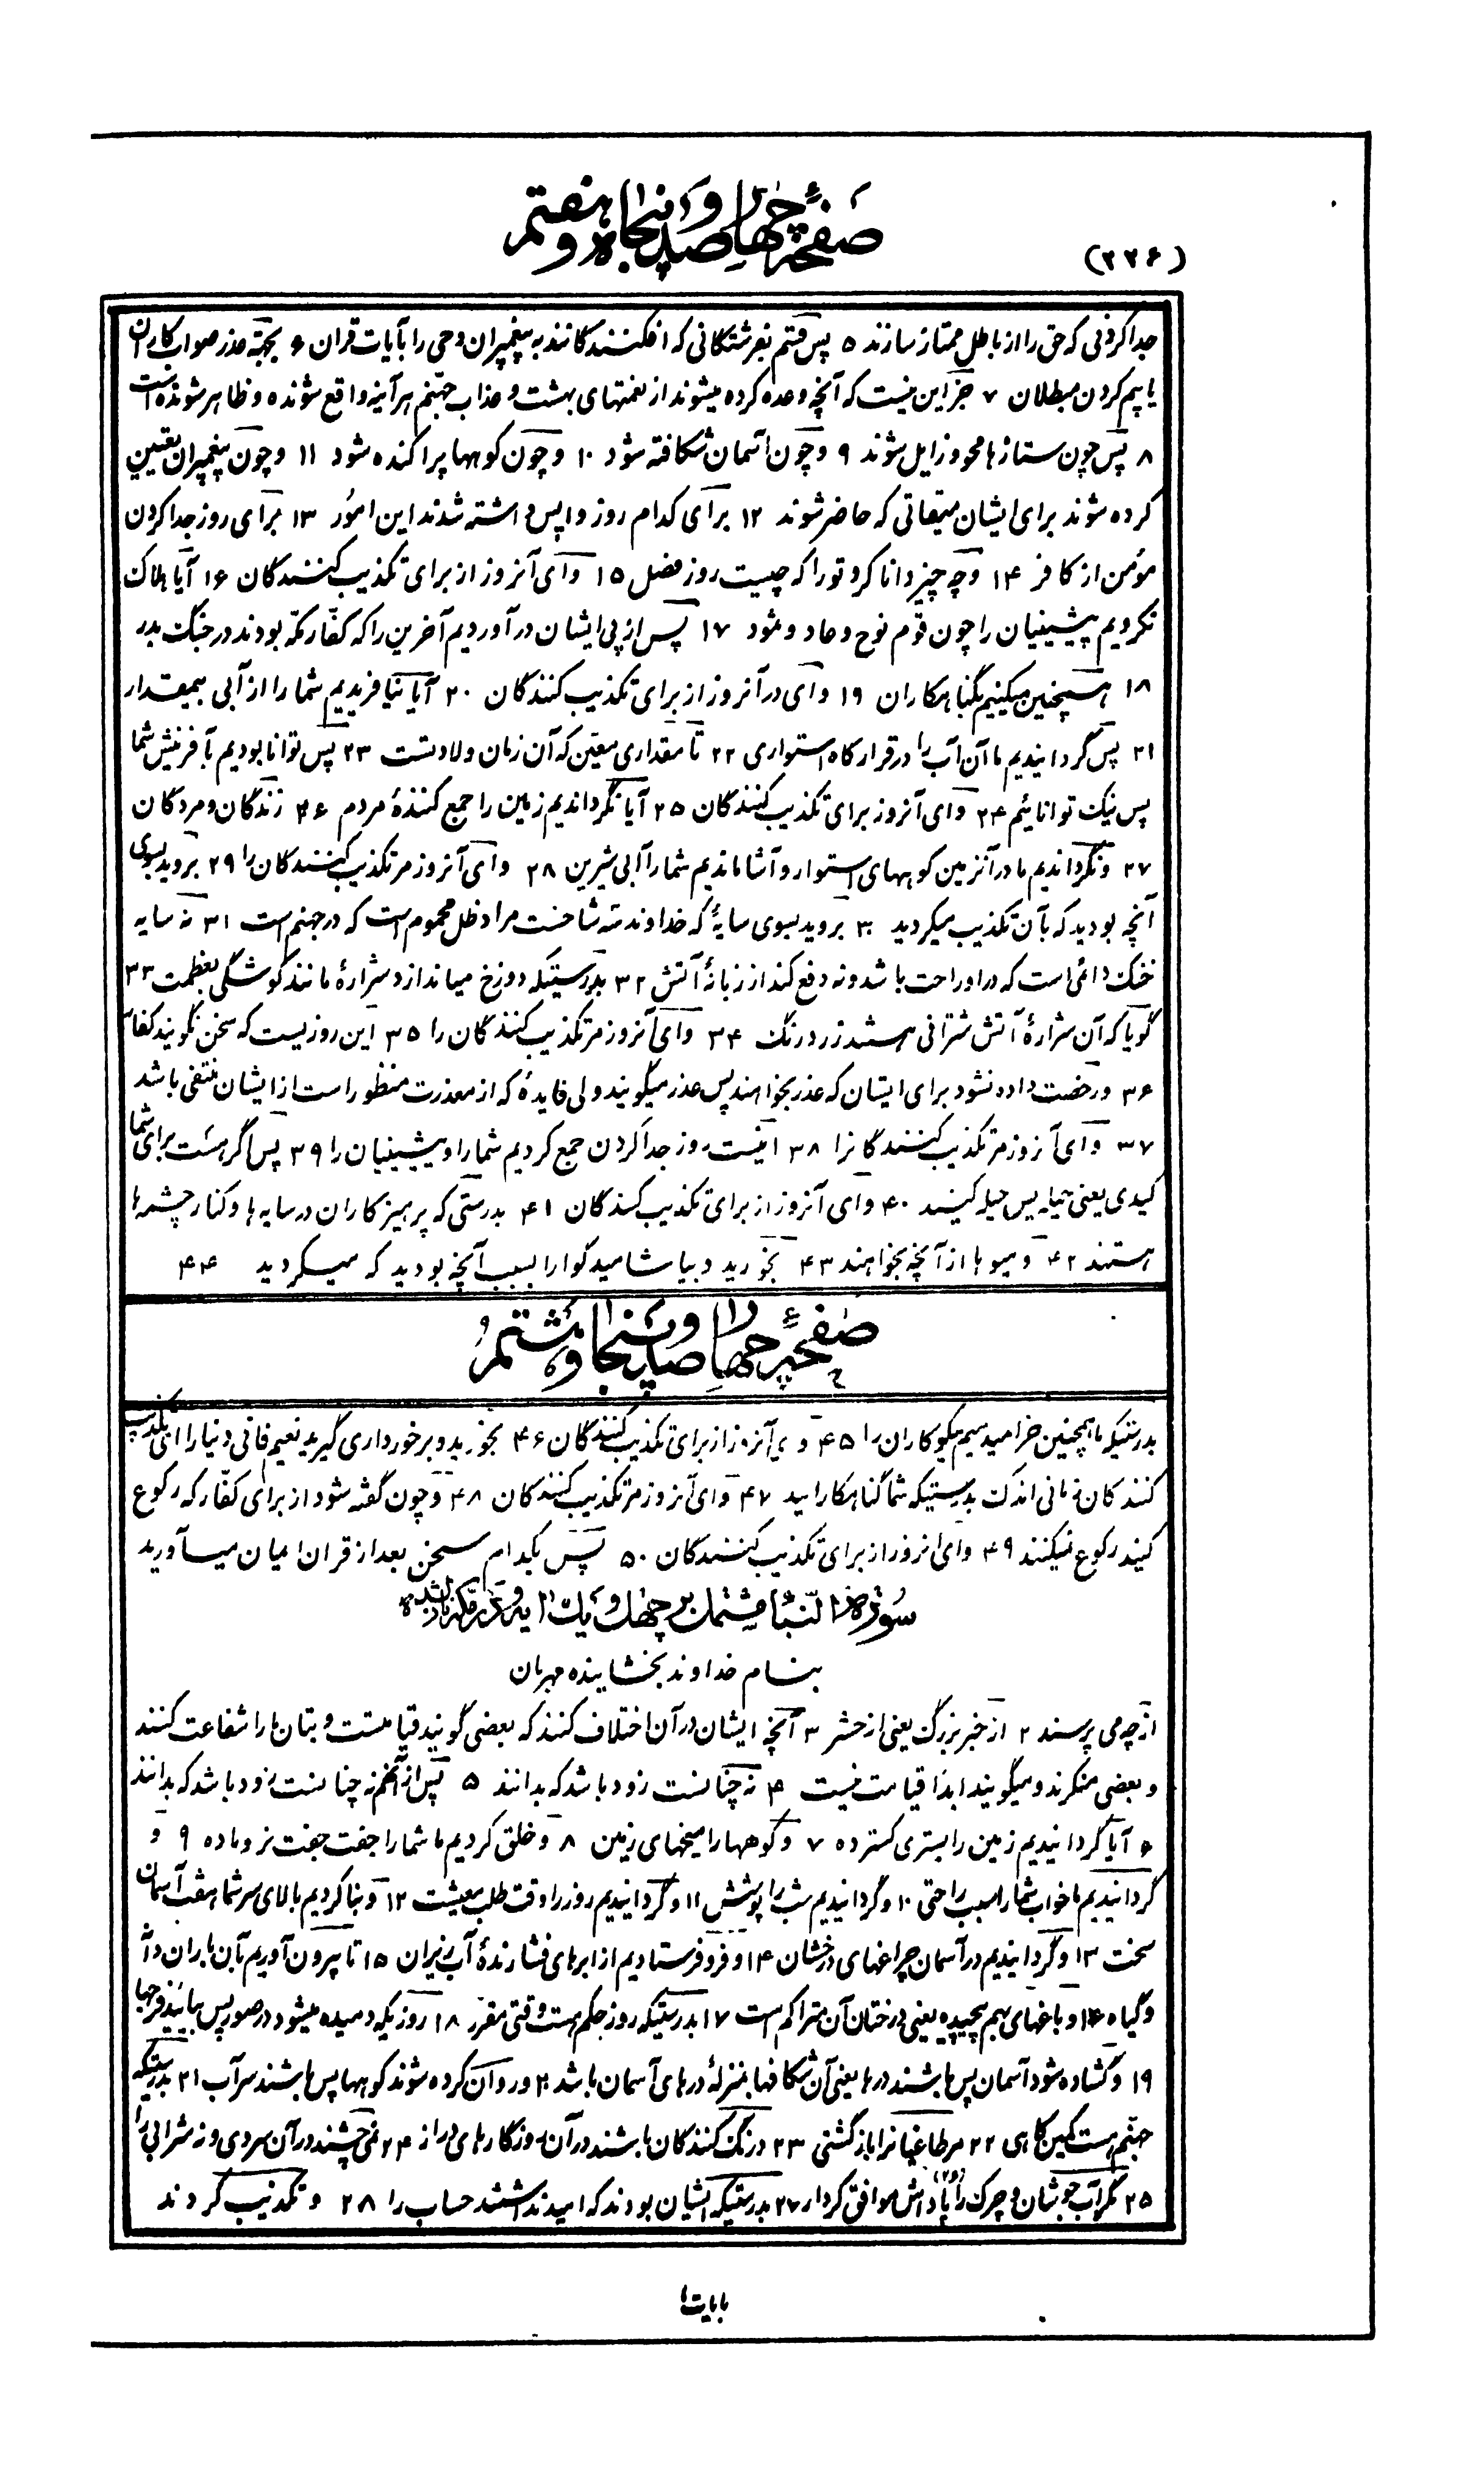 صفحهٔ چهارصد و پنجاه و هفتم
(۲۲۶)
جدا کردنی که حق را از باطل ممتاز سازند ۵ پس قسم بفرشتگانی که افکنندگانند به پیغمبران وحی را بآیات قران ۶ بجهته عذر صواب کاران
یا بیم کردن مبطلان ۷ جز این نیست که آنچه وعده کرده میشوند از نعمتهای بهشت و عذاب جهنم هر آینه واقع شونده و ظاهر شونده است
۸ پس چون ستارها محو و زایل شوند ۹ و چون آسمان شکافته شود ۱۰ و چون کوهها پراکنده شود ۱۱ و چون پیغمبران تعیین
کرده شوند برای ایشان میقاتی که حاضر شوند ۱۲ برای کدام روز واپس داشته شدند این امور ۱۳ برای روز جدا کردن
مؤمن از کافر ۱۴ و چه چیز دانا کرد تو را که چیست روز فصل ۱۵ وای آنروز از برای تکذیب کنندگان ۱۶ آیا هلاک
نکردیم پیشینیان را چون قوم نوح و عاد و ثمود ۱۷ پس از پی ایشان در آوردیم آخرین را که کفار مکه بودند در جنگ بدر
۱۸ همچنین میکنیم بگناهکاران ۱۹ وای در آنروز از برای تکذیب کنندگان ۲۰ آیا نیافریدیم شما را از آبی بیمقدار
۲۱ پس گردانیدیم ما آن آب را در قرارگاه استواری ۲۲ تا مقداری معین که آن زمان ولادتست ۲۳ پس توانا بودیم بآفرینش شما
پس نیک توانائیم ۲۴ وای آنروز برای تکذیب کنندگان ۲۵ آیا نگرداندیم زمین را جمع کنندهٔ مردم ۲۶ زندگان و مردگان
۲۷ و نگرداندیم ما در آنزمین کوههای استوار و آشاماندیم شما را آبی شیرین ۲۸ وای آنروز مر تکذیب کنندگان را ۲۹ بروید بسوی
آنچه بودید که بآن تکذیب میکردید ۳۰ بروید بسوی سایهٔ که خداوند سه شاخست مراد ظل یحموم است که در جهنم است ۳۱ نه سایه
خنک دائمی است که در او راحت باشد و نه دفع کند از زبانهٔ آتش ۳۲ بدرستیکه دوزخ میاندازد شرارهٔ مانند کوشگی بعظمت ۳۳
گویا که آن شرارهٔ آتش شترانی هستند زرد رنگ ۳۴ وای آنروز مر تکذیب کنندگان را ۳۵ این روزیست که سخن نگویند کفار
۳۶ و رخصت داده نشود برای ایشان که عذر بخواهند پس عذر میگویند ولی فایدهٔ که از معذرت منظور است از ایشان منتفی باشد
۳۷ وای آنروز مر تکذیب کنندگانرا ۳۸ اینست روز جدا کردن جمع کردیم شما را و پیشینیان را ۳۹ پس اگر هست برای شما
کیدی یعنی حیله پس حیله کنید ۴۰ وای آنروز از برای تکذیب کنندگان ۴۱ بدرستی که پرهیزکاران در سایه ها و کنار چشمه ها
هستند ۴۲ و میوها از آنچه بخواهند ۴۳ بخورید و بیاشامید گوارا بسبب آنچه بودید که میکردید ۴۴
صفحهٔ چهارصد و پنجاه و هشتم
بدرستیکه ما همچنین جزا میدهیم نیکوکاران را ۴۵ وای آنروز از برای تکذیب کنندگان ۴۶ بخورید و برخورداری گیرید نعیم فانی دنیا را ای تکذیب
کنندگان زمانی اندک بدرستیکه شما گناهکارانید ۴۷ وای آنروز مر تکذیب کنندگان ۴۸ و چون گفته شود از برای کفار که رکوع
کنید رکوع نمیکنند ۴۹ وای آنروز از برای تکذیب کنندگان ۵۰ پس بکدام سخن بعد از قران ایمان میآورید
سورة النبأ مشتمل بر چهل و یک آیه و در مکه نازل شده
بنام خداوند بخشاینده مهربان
از چه می پرسند ۲ از خبر بزرگ یعنی از حشر ۳ آنچه ایشان در آن اختلاف کنند که بعضی گویند قیامتست و بتان ما را شفاعت کنند
و بعضی منکرند و میگویند ابدا قیامت نیست ۴ نه چنانست زود باشد که بدانند ۵ پس از آنهم نه چنانست زود باشد که بدانند
۶ آیا گردانیدیم زمین را بستری گسترده ۷ و کوهها را میخهای زمین ۸ و خلق کردیم ما شما را جفت جفت نر و ماده ۹ و
گردانیدیم ما خواب شما را سبب راحتی ۱۰ و گردانیدیم شب را پوشش ۱۱ و گردانیدیم روز را وقت طلب معیشت ۱۲ و بنا کردیم بالای سر شما هفت آسمان
سخت ۱۳ و گردانیدیم در آسمان چراغهای درخشان ۱۴ و فرو فرستادیم از ابرهای فشارندهٔ آب ریزان ۱۵ تا بیرون آوریم بآن باران دانه
و گیاه ۱۶ و باغهای بهم پیچیده یعنی درختان آن متراکم است ۱۷ بدرستیکه روز حکم هست وقتی مقرر ۱۸ روزیکه دمیده میشود در صور پس بیایند فوجها
۱۹ و گشاده شود آسمان پس باشند درها یعنی آن شکافها بمنزلهٔ درهای آسمان باشد ۲۰ و روان کرده شوند کوهها پس باشند سرآب ۲۱ بدرستیکه
جهنم هست کمین گاهی ۲۲ مر طاغیانرا بازگشتی ۲۳ درنگ کنندگان باشند در آن روزگارهای دراز ۲۴ نمی چشند در آن سردی و نه شرابی را
۲۵ مگر آب جوشان و چرک را (۲۶) پاداش موافق کردار ۲۷ بدرستیکه ایشان بودند که امید نداشتند حساب را ۲۸ و تکذیب کردند
بآیات ما